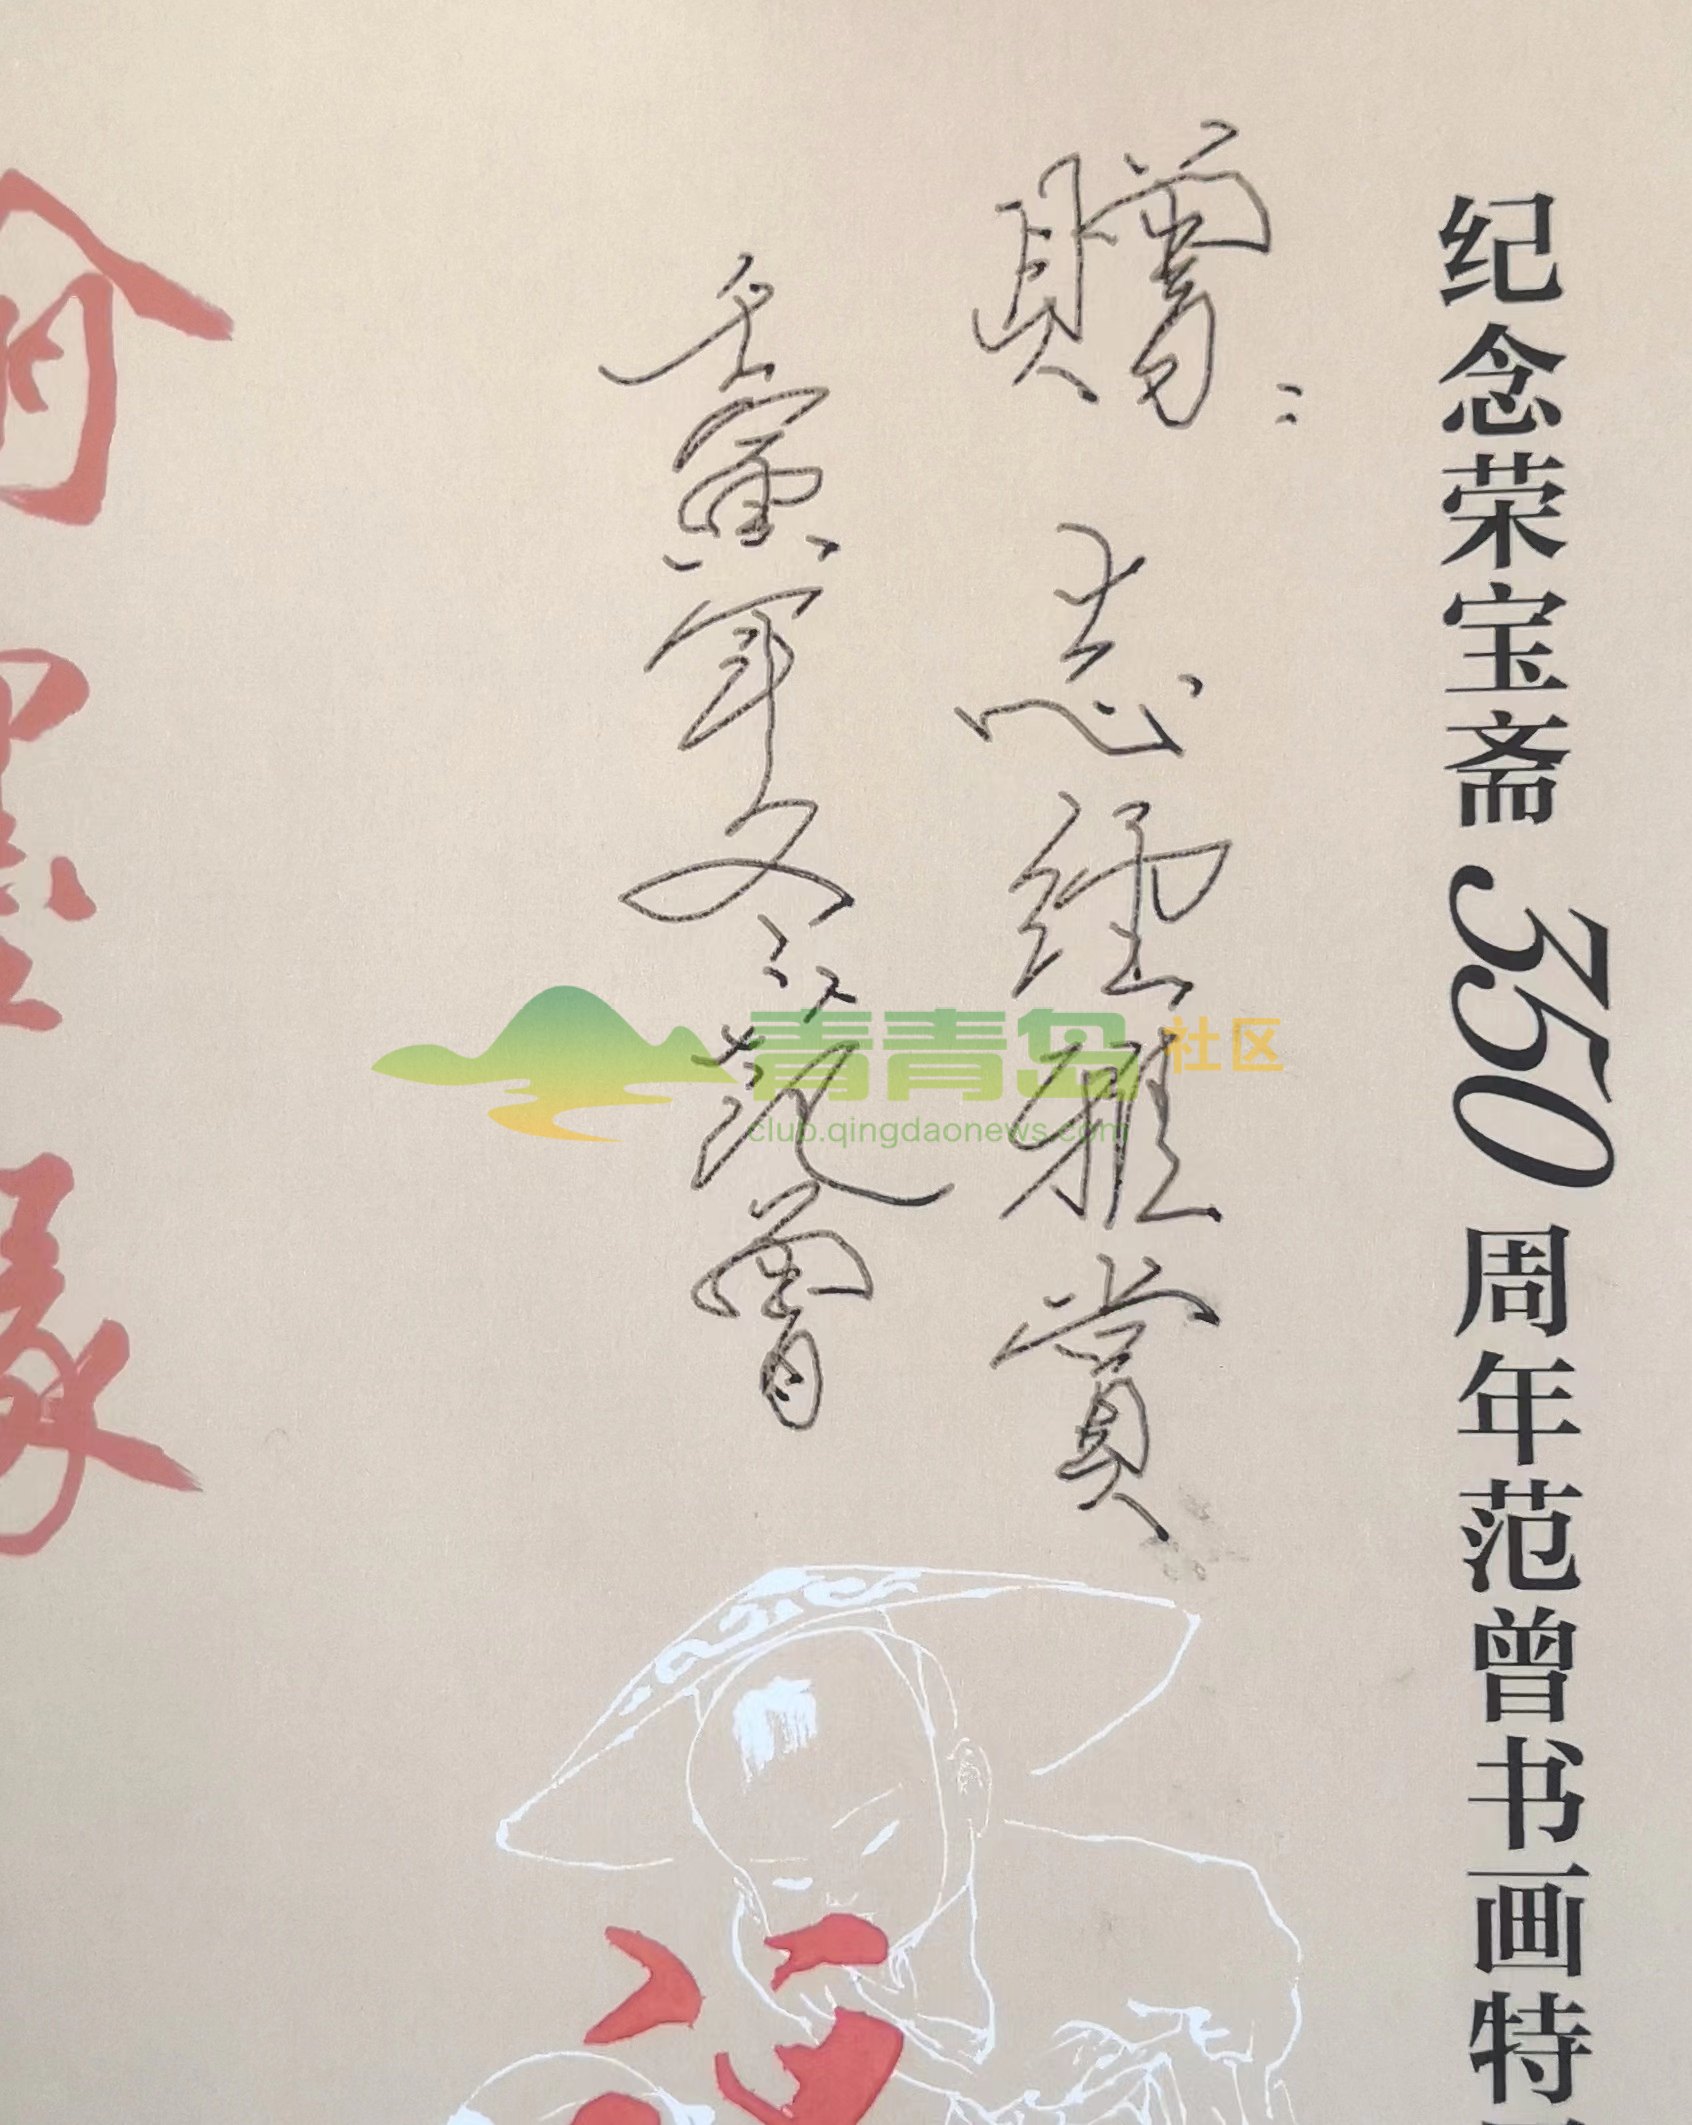 纪念荣宝斋350周年范曾书画特
贈：志經雅賞
壬寅年冬范曾
墨
青青岛社区
club.qingdaonews.com